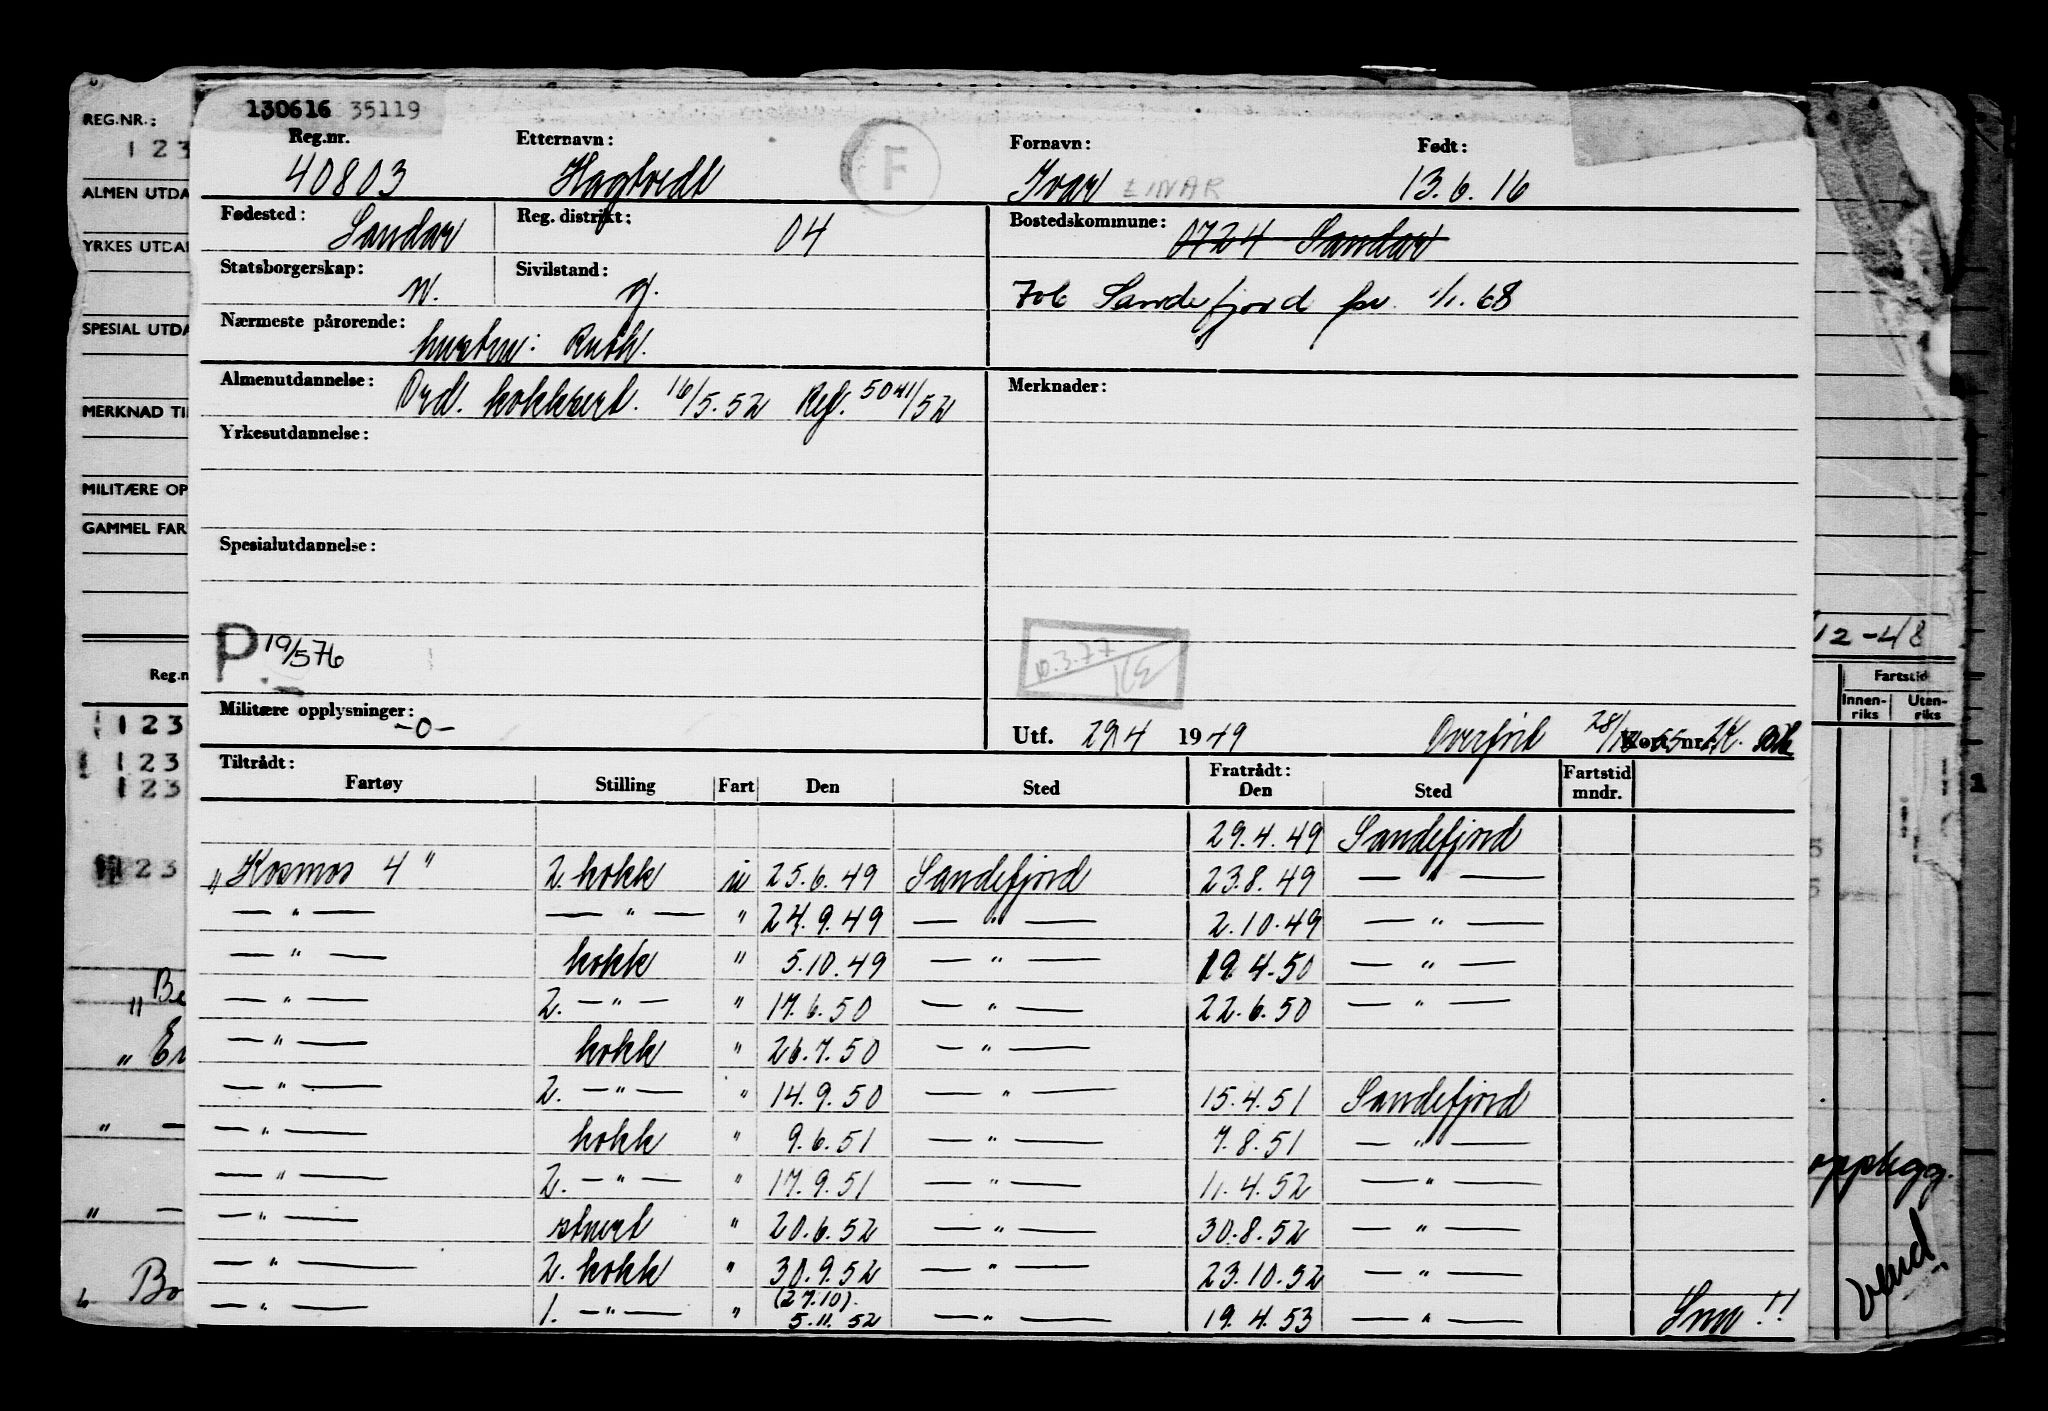 130616 35119
Reg.nr. Etternavn: Fornavn: Født:
40803 Hagtvedt F Ivar EINAR 13.6.16
Fødested: Sandar Reg. distrikt: 04 Bostedskommune: 0724 Sandar
Statsborgerskap: n. Sivilstand: g. 706 Sandefjord fr. 1/1.68
Nærmeste pårørende: hustru: Ruth.
Almenutdannelse: Ord. kokksert. 16/5.52 Ref. 5041/52 Merknader:
Yrkesutdannelse:
Spesialutdannelse:
P 19/576
Militære opplysninger: -0- Utf. 29.4 1949 Overført 28/ Kort nr.
Tiltrådt: Fratrådt: Fartstid
Fartøy Stilling Fart Den Sted Den Sted mndr.
29.4.49 Sandefjord
"Kosmos 4" 2. kokk u 25.6.49 Sandefjord 23.8.49 — " —
— " — — " — " 24.9.49 — " — 2.10.49 — " —
— " — kokk " 5.10.49 — " — 19.4.50 — " —
— " — 2. — " — " 17.6.50 — " — 22.6.50 — " —
— " — kokk " 26.7.50 — " —
— " — 2. — " — " 14.9.50 — " — 15.4.51 Sandefjord
— " — kokk " 9.6.51 — " — 7.8.51 — " —
— " — 2. — " — " 17.9.51 — " — 11.4.52 — " —
— " — stuert " 20.6.52 — " — 30.8.52 — " —
— " — 2. kokk " 30.9.52 — " — 23.10.52 — " —
— " — 1. — " — " (27.10). 5.11.52 — " — 19.4.53 — " — Snu !!
REG.NR.:
123
ALMEN UTDA
YRKES UTDA
SPESIAL UTDA
MERKNAD TI
MILITÆRE OP
GAMMEL FAR
Reg.n
123
123
123
123
"Be
" —
" —
" Bo
12-48
Fartstid
Innen-riks Uten-riks
opplegg.
1